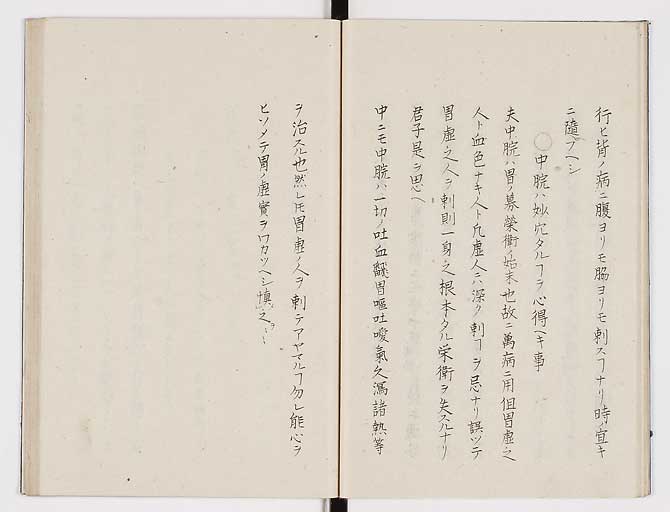 行ヒ皆ノ病ニ腹ヨリモ脇ヨリモ刺スヿナリ時ノ宜キ
ニ隨フヘシ
〇中脘ハ妙穴タルヿヲ心得ヘキ事
夫中脘ハ胃ノ募榮衛ノ始末也故ニ萬病ニ用但胃虚之
人ト血色ナキ人ト凡虚人ニハ深ク刺ヿヲ忌ナリ誤ツテ
胃虚之人ヲ刺則一身之根本タル栄衛ヲ失スルナリ
君子是ヲ思ヘ
中ニモ中脘ハ一切ノ吐血飜胃嘔吐噯氣久瀉諸熱等
ヲ治スル也然レ𪜈胃虚ノ人ヲ刺テアヤマルヿ勿レ能心ヲ
ヒソメテ胃ノ虚實ヲワカツヘシ慎之ヲ〻